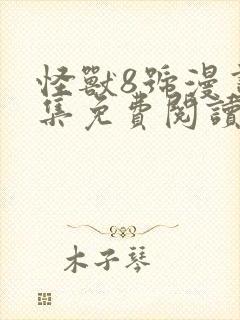 怪獸8號漫
集免費閱讀
木子琴